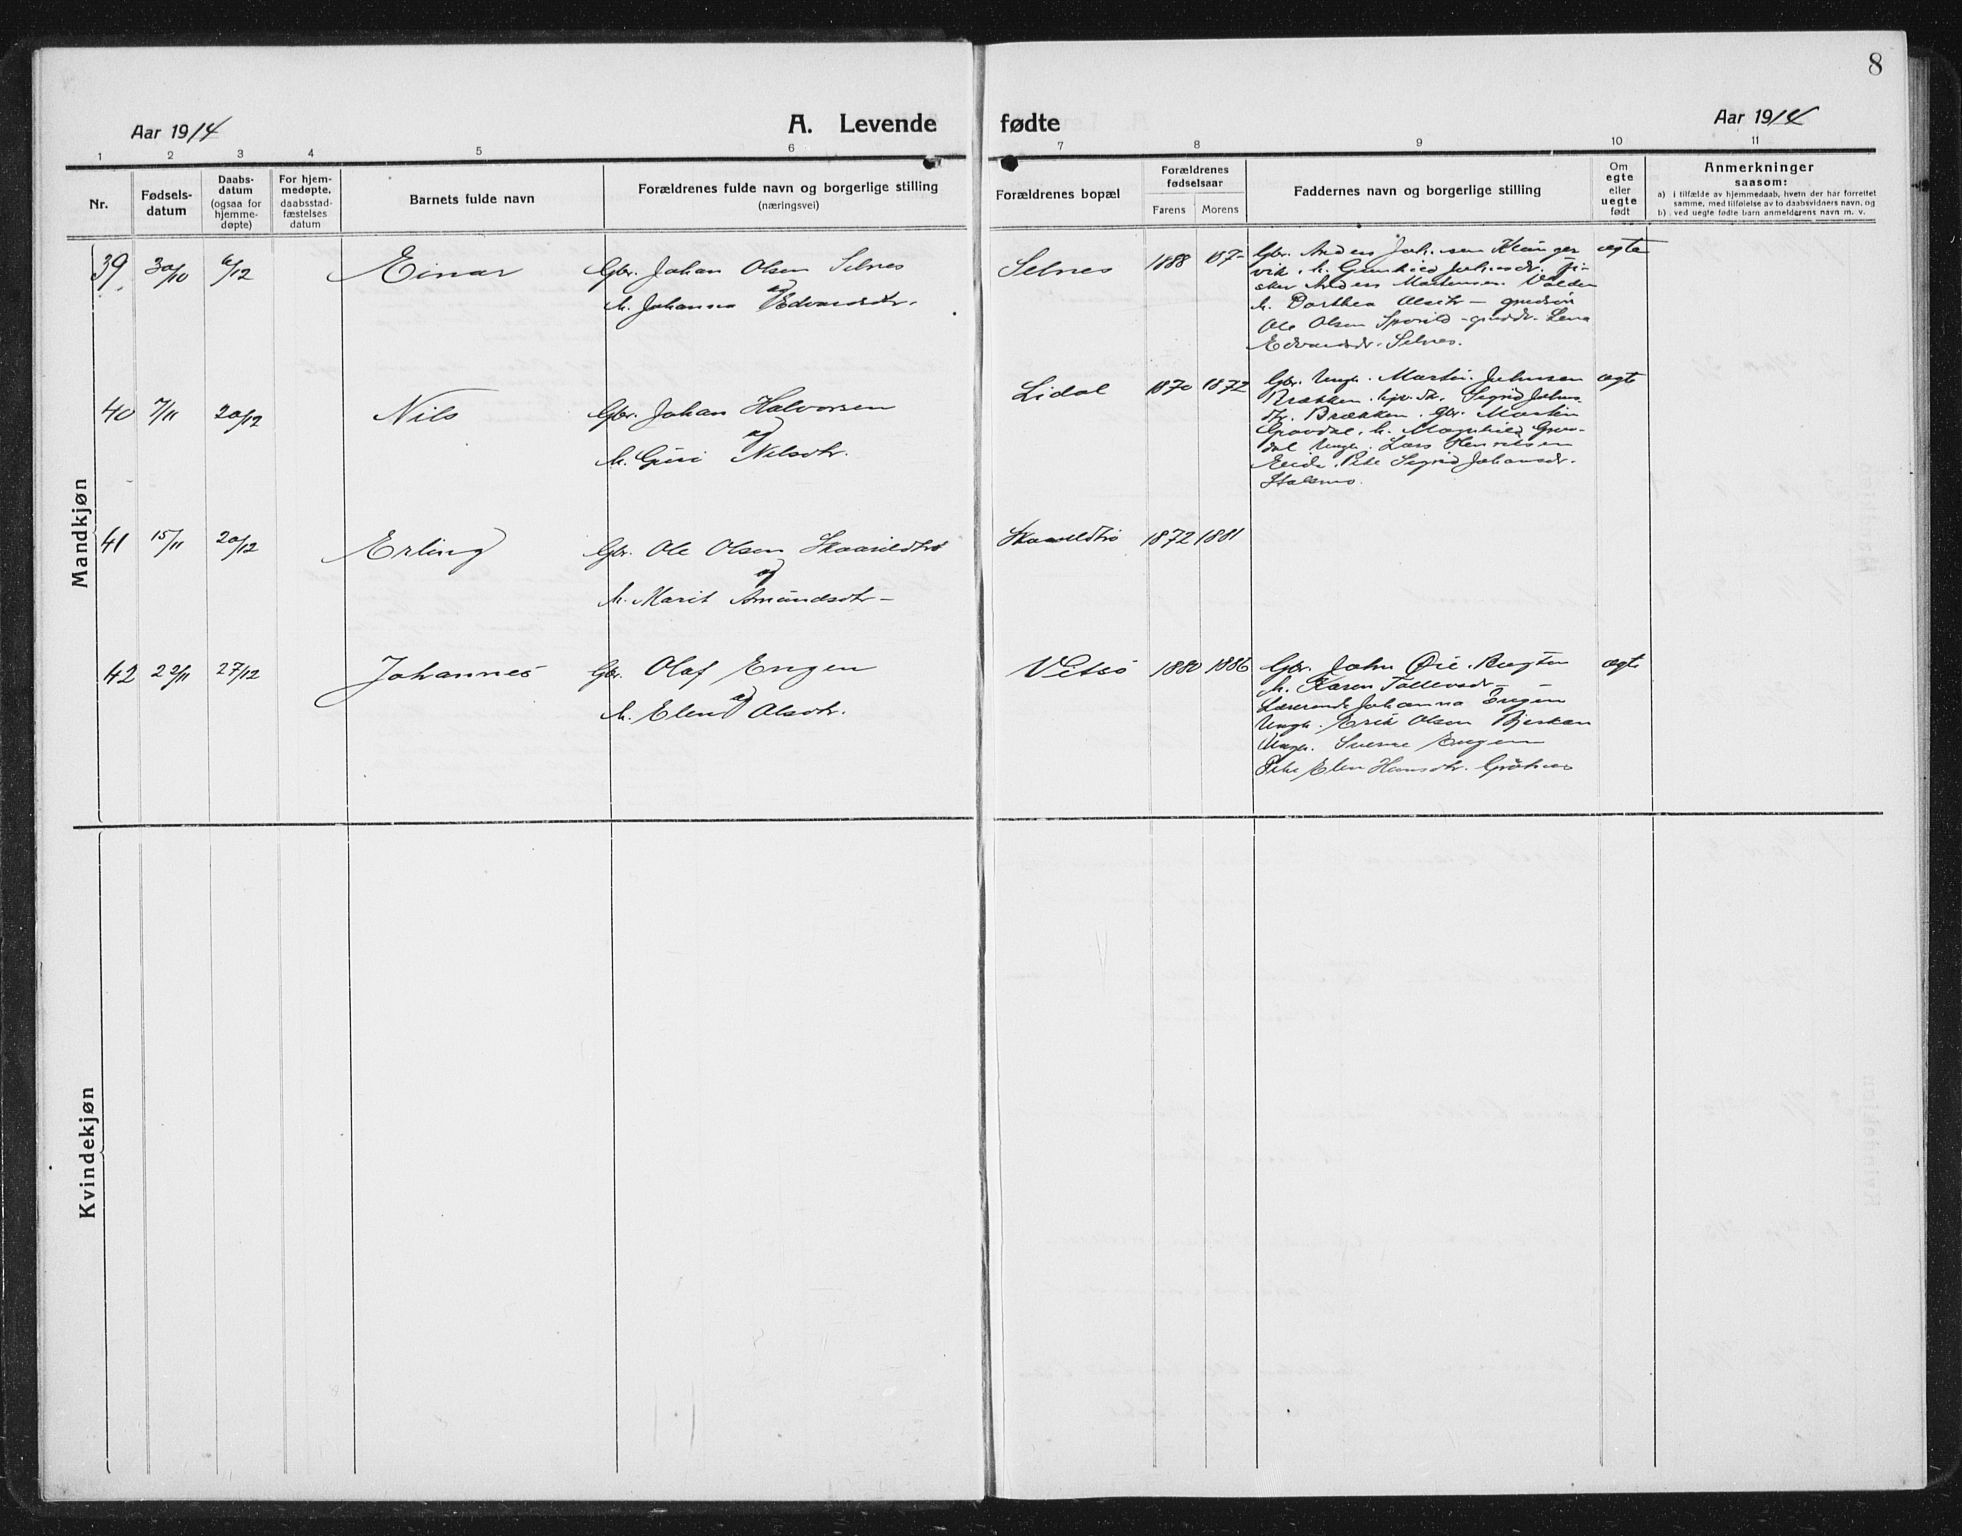 8
Aar 1914
A. Levende fødte
Aar 1914
1 2 3 4 5 6 7 8 9 10 11
Nr.
Fødsels-
datum
Daabs-
datum
(ogsaa for
hjemme-
døpte)
For hjem-
medøpte,
daabsstad-
fæstelses
datum
Barnets fulde navn
Forældrenes fulde navn og borgerlige stilling
(næringsvei)
Forældrenes bopæl
Forældrenes
fødselsaar
Farens Morens
Faddernes navn og borgerlige stilling
Om
egte
eller
uegte
født
Anmerkninger
saasom:
a) i tilfælde av hjemmedaab, hvem der har forrettet
samme, med tilføielse av to daabsvidners navn, og
b) ved uegte fødte barn anmelderens navn m. v.
Mandkjøn
39 30/10 6/12 Einar Gbr. Johan Olsen Selnes
og
h. Johanna Edvardsdtr.
Selnes 1888
Gbr. Anders Johnsen Klinger
vik. h. Gunhild Johnsdr. Fi-
sker Anders Mortensen Valden
h. Dorthea Olsdtr - grudsøn
Ole Olsen Sporild - grddr. Lena
Edvardsdr. Selnes.
ægte
40 7/11 20/12 Nils Gbr. Johan Halvorsen
og
h. Guri Nilsdtr.
Lidal 1870 1872
Gbr. Ungk. Martin Johnsen
Brækken. Sigrid Johns
dtr. Brækken. Gbr. Martin
h. Magnhild
dal Ungk. Lars Henriksen
Eide. Pike Sigrid Johansdr.
Stalsmo.
ægte
41 15/11 20/12 Erling Gbr. Ole Olsen Skaarildtrø
og
h. Marit Amundsdtr -
Skaarildtrø 1872 1881
42 22/11 27/12 Johannes Gbr. Olaf Engen
og
h. Elen Olsdtr.
Vitsø 1880 1886
Gbr. John Øie.
h. Karen Tollevsdr -
Lærerinde Johanna Engen
Ungk. Erik Olsen Bjerkan
Ungk. Sverre Engen
Pike Elen Hansdtr.
ægte
Kvindekjøn